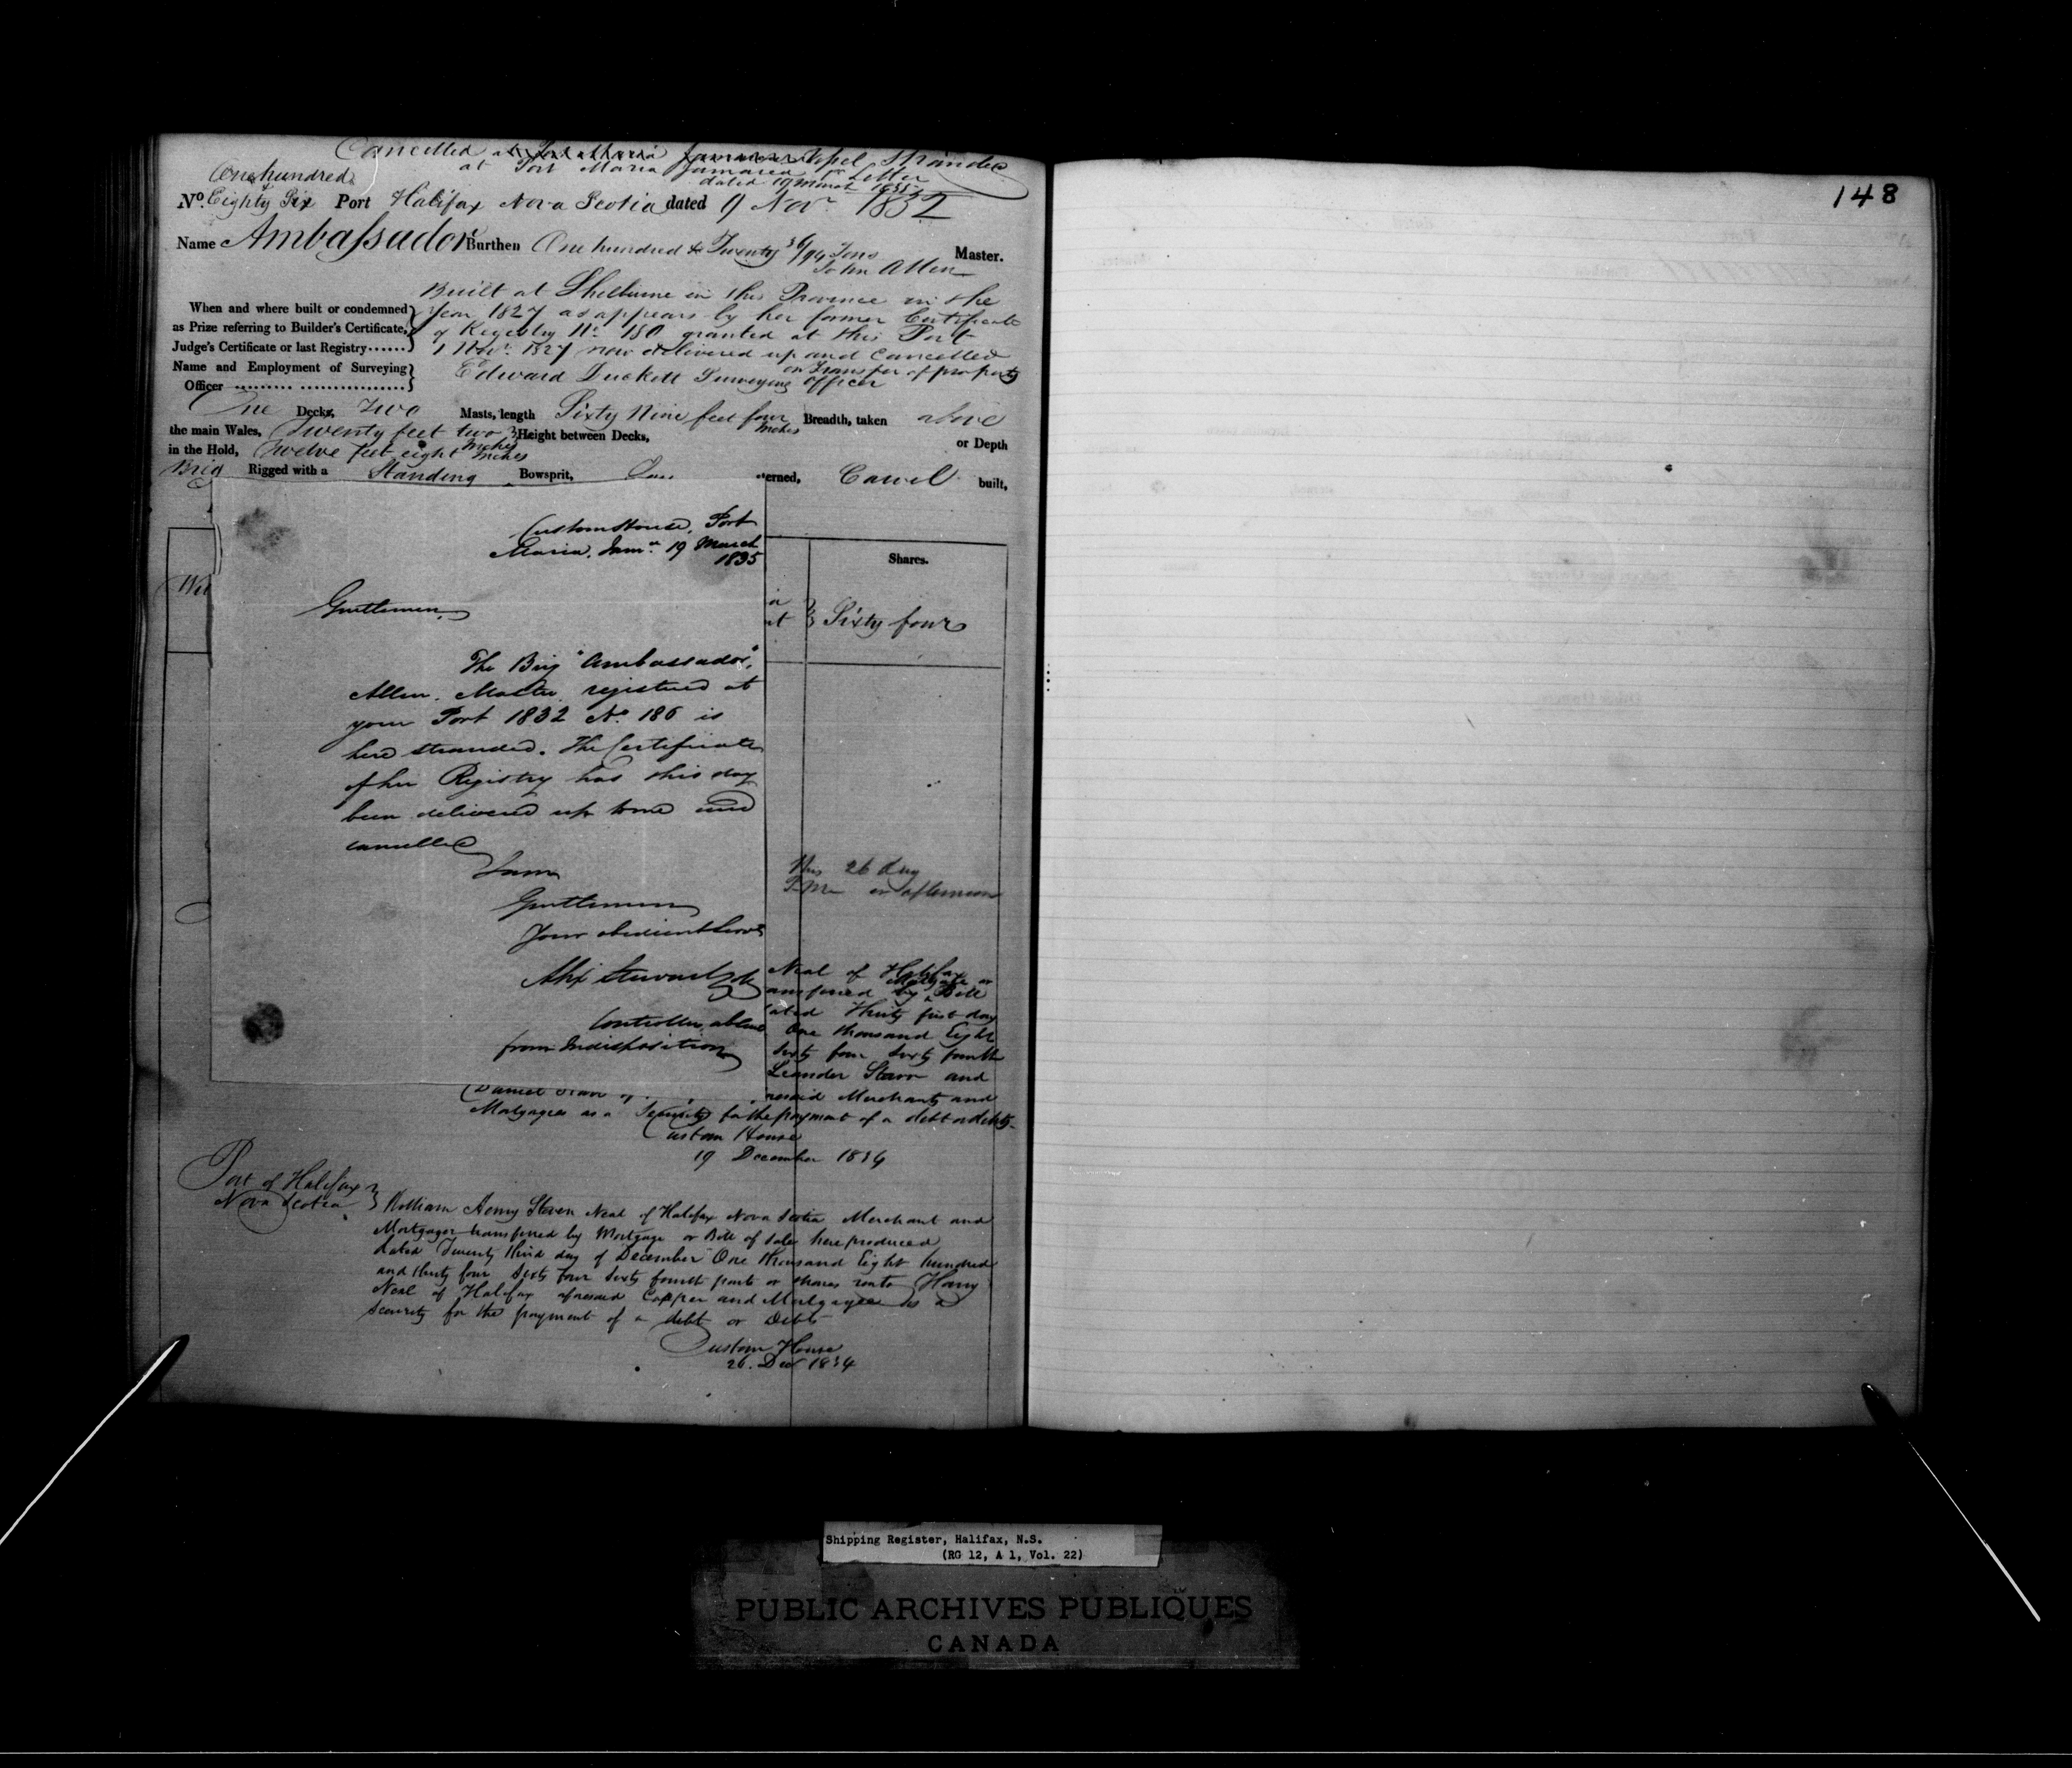 Cancelled at Port Maria Jamaica Vessel Stranded
at Port Maria Jamaica pr Letter
dated 19 March 1835
One hundred
No. Eighty Six Port Halifax Nova Scotia dated 9 Novr 1832
Name Ambassador Burthen One hundred & Twenty 36/94 Tons Master.
John Allen
Built at Shelburne in this Province in the
When and where built or condemned Year 1827 as appears by her former Certificate
as Prize referring to Builder's Certificate, of Registry No. 180 granted at this Port
Judge's Certificate or last Registry...... 1 Novr. 1827 now delivered up and Cancelled
on Transfer of property
Name and Employment of Surveying Edward Duckett Surveying Officer
Officer ......... ................
One Decks, Two Masts, length Sixty Nine feet four Inches Breadth, taken above
the main Wales, Twenty feet two Inches Height between Decks, or Depth
in the Hold, Twelve feet eight Inches
Brig Rigged with a Standing Bowsprit, erned, Carvel built,
Custom House, Port
Maria, Jama. 19 March
1835
Shares.
Wil
Gentlemen,
Sixty four
The Brig "Ambassador",
Allen, Master, registered at
your Port 1832 No. 186 is
here stranded. The Certificate
of her Registry has this day
been delivered up to me and
cancelled
I am
Gentlemen
Your obedient Servt
Alex Stewart
Controller absent
from Indisposition
This 26 day
P.M. in afternoon
Neal of Halifax
ansferred by Bill
ated Thirty first day
One thousand Eight
Sixty four Sixty fourth
Leander Starr and
Daniel Starr of resaid Merchants and
Mortgagees as a Security for the payment of a debt or debts
Custom House
19 December 1834
Port of Halifax
Nova Scotia
William Henry Steven Neal of Halifax Nova Scotia Merchant and
Mortgagor transferred by Mortgage or Bill of Sale here produced
dated Twenty third day of December One thousand Eight hundred
and thirty four Sixty four Sixty fourth parts or shares unto Harry
Neal of Halifax aforesaid Cooper and Mortgagee as a
security for the payment of a debt or Debts
Custom House
26. Dec 1834
148
Shipping Register, Halifax, N.S.
(RG 12, A 1, Vol. 22)
PUBLIC ARCHIVES PUBLIQUES
CANADA